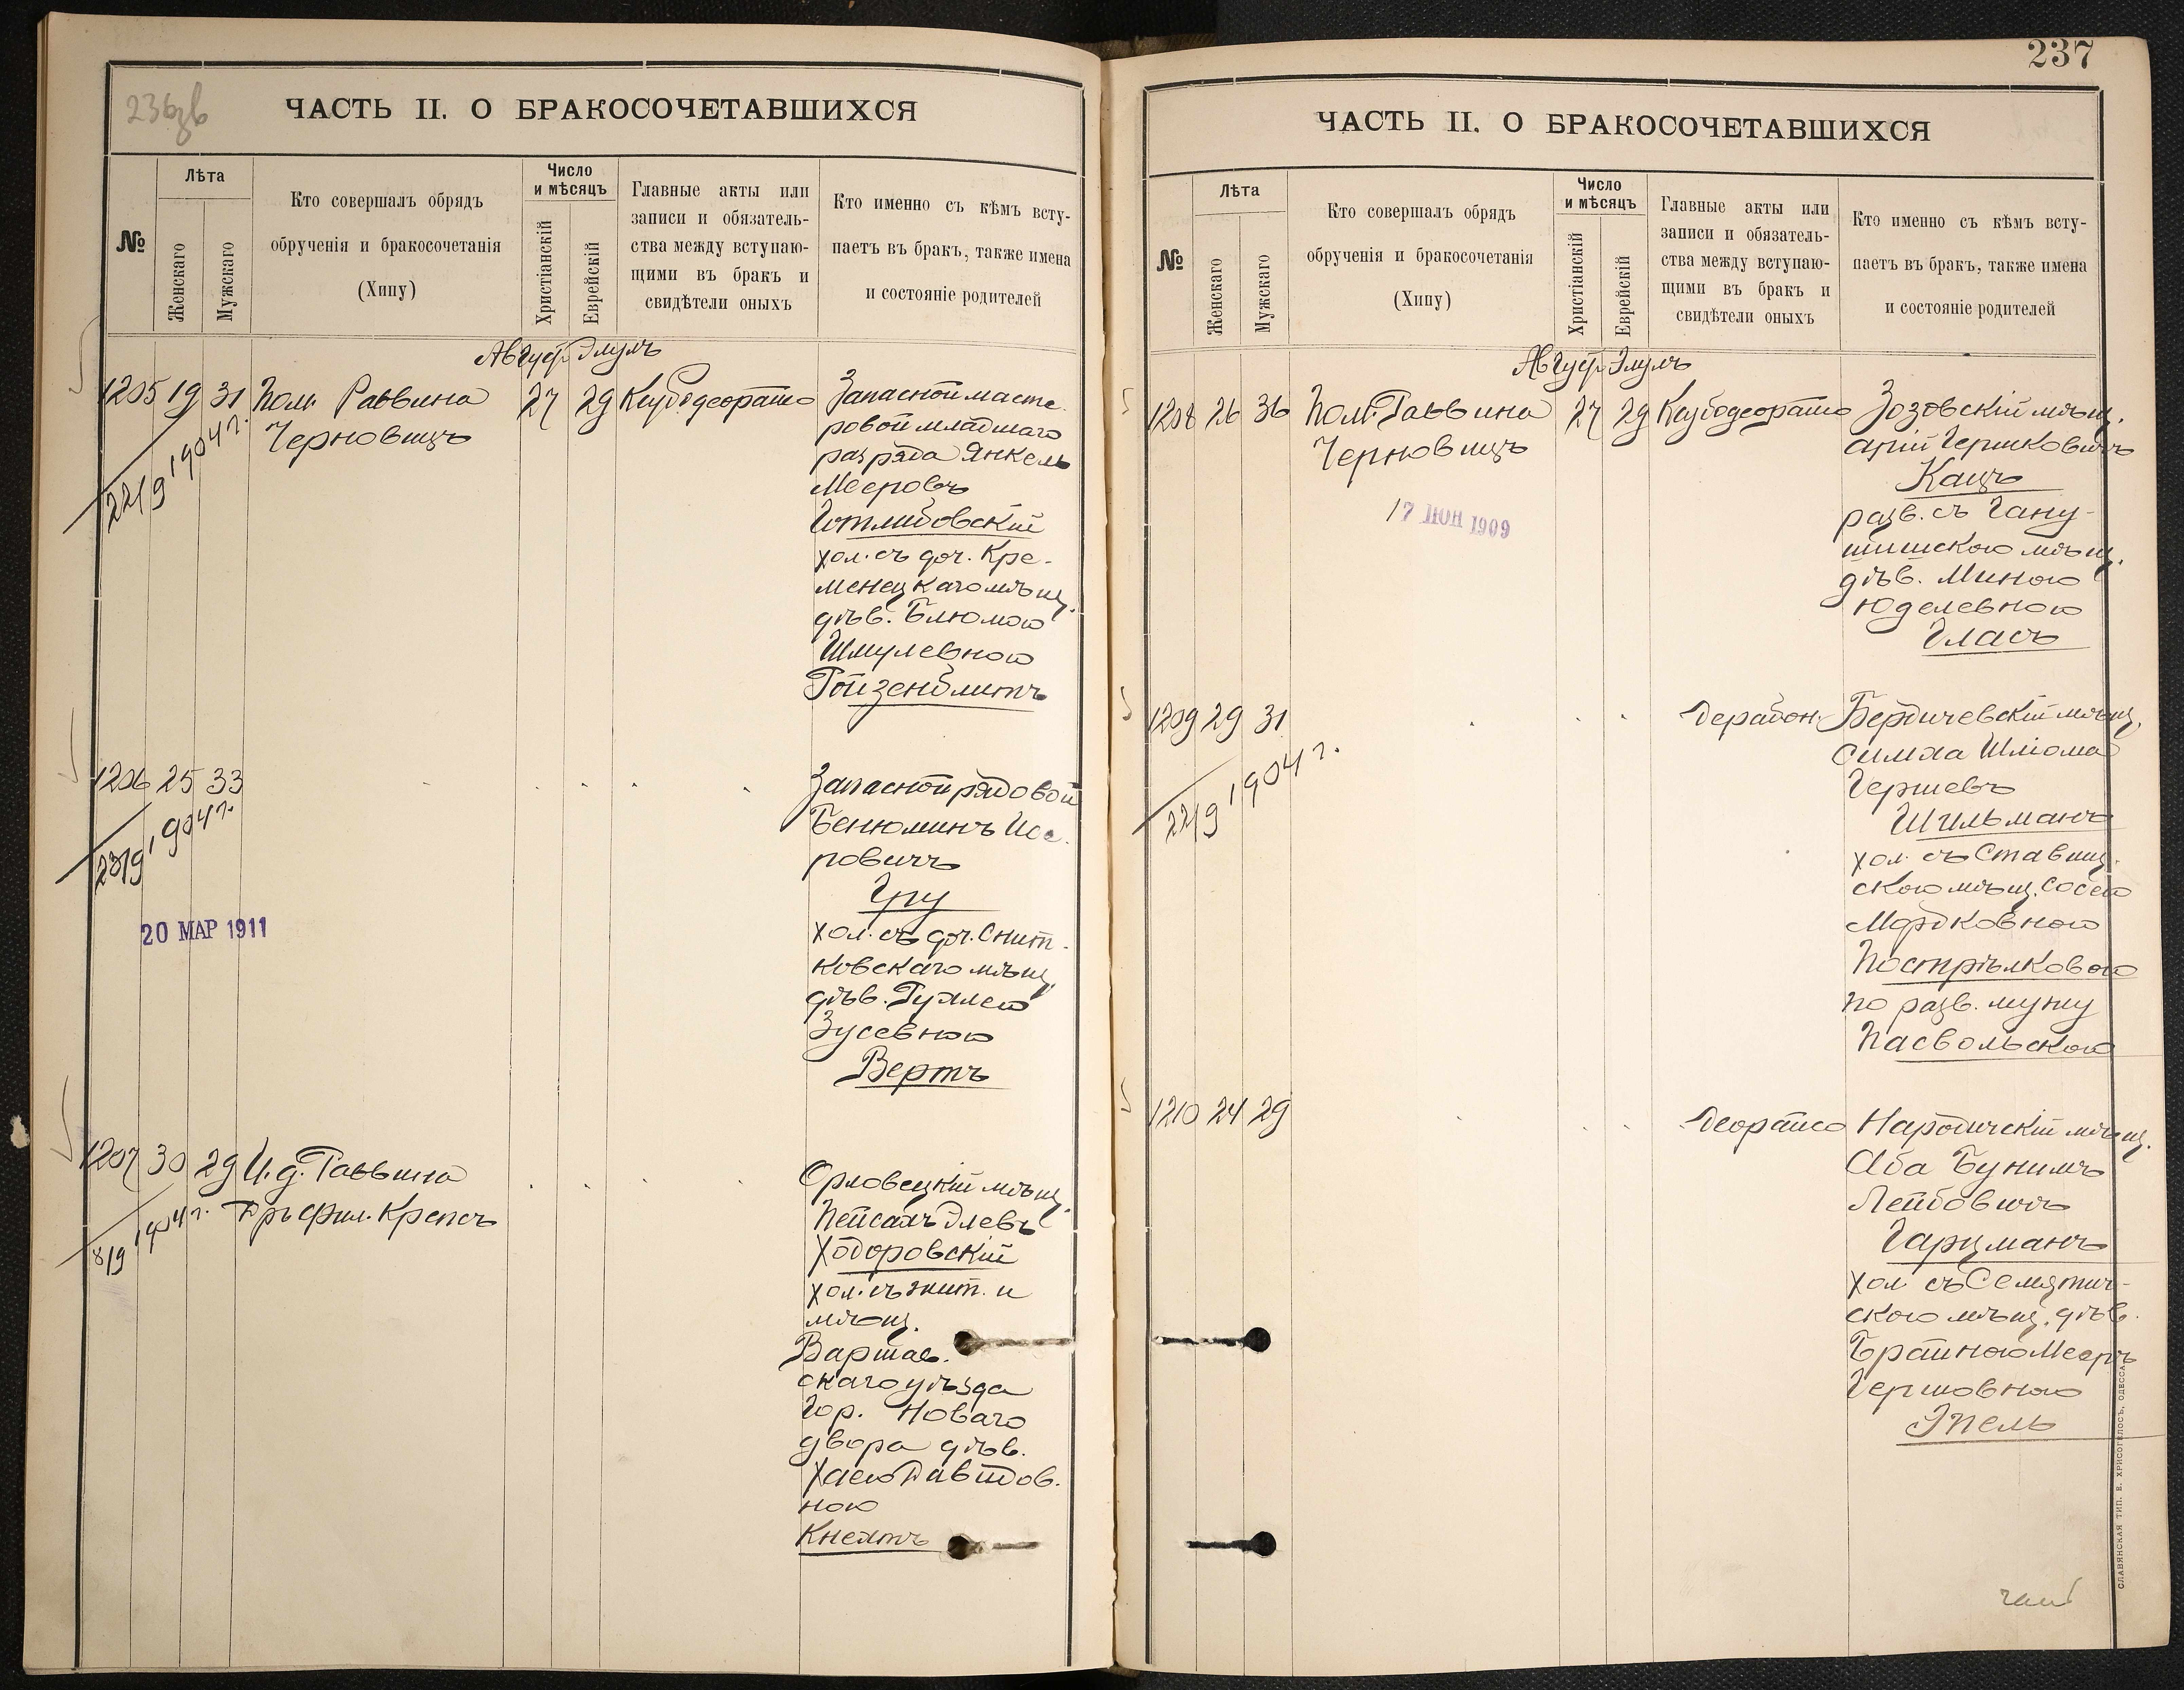 236зв
ЧАСТЬ II. О БРАКОСОЧЕТАВШИХСЯ
№
Лѣта
Женскаго
Мужскаго
Кто совершалъ обрядъ
обрученія и бракосочетанія
(Хипу)
Число
и мѣсяцъ
Христіанскій
Еврейскій
Главные акты или
записи и обязатель-
ства между вступаю-
щими въ бракъ и
свидѣтели оныхъ
Кто именно съ кѣмъ всту-
паетъ въ бракъ, также имена
и состояніе родителей
Август Элулъ
1205 19 31 Пом. Раввина
Черновицъ
27 29
22/9 1904 г.
Запасной масте-
ровой младшаго
разряда Янкель
Мееровъ
Готлибовскій
хол. съ доч. Кре-
менецкаго мѣщ.
дѣв. Блюмою
Шмулевною
Ройзенблитъ
1206 25 33
23/9 1904 г.
20 МАР 1911
Запасной рядовой
Бенюминъ
ровичъ
Гру
хол. съ доч. Снит-
ковскаго мѣщ.
дѣв. Рухлею
Зусевною
Вертъ
1207 30 29 И. д. Раввина
Д-ръ Фил. Крепсъ
8/9 1904 г.
Орловецкій мѣщ.
Пейсахъ Элевъ
Ходоровскій
хол. съ жит. и
мѣщ.
Варшав-
скаго уѣзда
Гор. Новаго
двора дѣв.
Хаею Давидов-
ною
Кнехтъ
237
ЧАСТЬ II. О БРАКОСОЧЕТАВШИХСЯ
№
Лѣта
Женскаго
Мужскаго
Кто совершалъ обрядъ
обрученія и бракосочетанія
(Хипу)
Число
и мѣсяцъ
Христіанскій
Еврейскій
Главные акты или
записи и обязатель-
ства между вступаю-
щими въ бракъ и
свидѣтели оныхъ
Кто именно съ кѣмъ всту-
паетъ въ бракъ, также имена
и состояніе родителей
Август Элулъ
1208 26 36 Пом. Раввина
Черновицъ
27 29
17 ІЮН 1909
Зозовскій мѣщ.
Арій Гершковичъ
Кацъ
разв. съ Гану-
шишскою мѣщ.
дѣв. Миною
Юделевною
Гласъ
1209 29 31
22/9 1904 г.
Бердичевскій мѣщ.
Симха Шліома
Гершевъ
Шильманъ
хол. съ Ставищ-
скою мѣщ. Сосею
Мордковною
Пострѣлковою
по разв. мужу
Пасвольскою
1210 24 29
Народичскій мѣщ.
Аба Бунимъ
Лейбовичъ
Гарцманъ
хол. съ Семятич-
скою мѣщ. дѣв.
Брайною Мееръ
Гершовною
Эпель
СЛАВЯНСКАЯ ТИП. Е. ХРИСОГЕЛОСЪ, ОДЕССА.